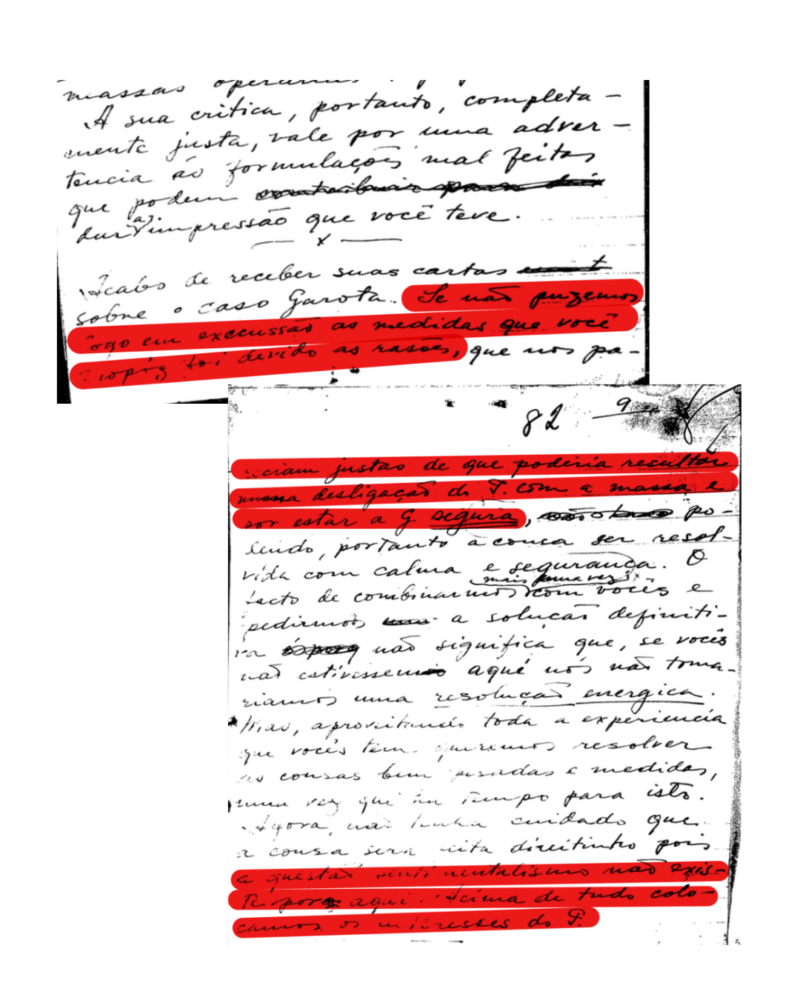 massas
A sua critica, portanto, completa-
mente justa, vale por uma adver-
tencia ás formulações mal feitas
que podem contribuir para dei
dar (a) impressão que você teve.
x
Acabo de receber suas cartas
sobre o caso Garota. Se não puzemos
logo em excussão as medidas que você
propôs foi devido as rasões, que nos pa-
82 9
reciam justas de que poderia resultar
numa desligação do P. com a massa e
por estar a G. segura, po-
dendo, portanto a cousa ser resol-
vida com calma e segurança. O
facto de combinarmos mais uma vez com vocês e
pedirmos a solução definiti-
va não significa que, se vocês
não estivessem aqui nós não toma-
riamos uma resolução energica.
Mas, aproveitando toda a experiencia
que vocês tem queremos resolver
as cousas bem pesadas e medidas,
uma vez que ha tempo para isto.
Agora, não tenha cuidado que
a cousa será feita direitinho pois
a questão sentimentalismo não exis-
te por aqui. Acima de tudo colo-
camos os interesses do P.